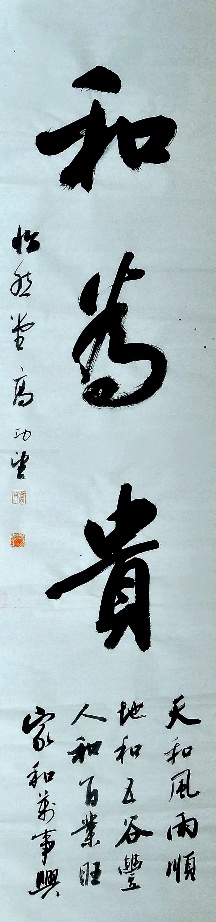 和為貴
天和風雨順
地和五谷豐
人和百業旺
家和萬事興
怡然堂高功望